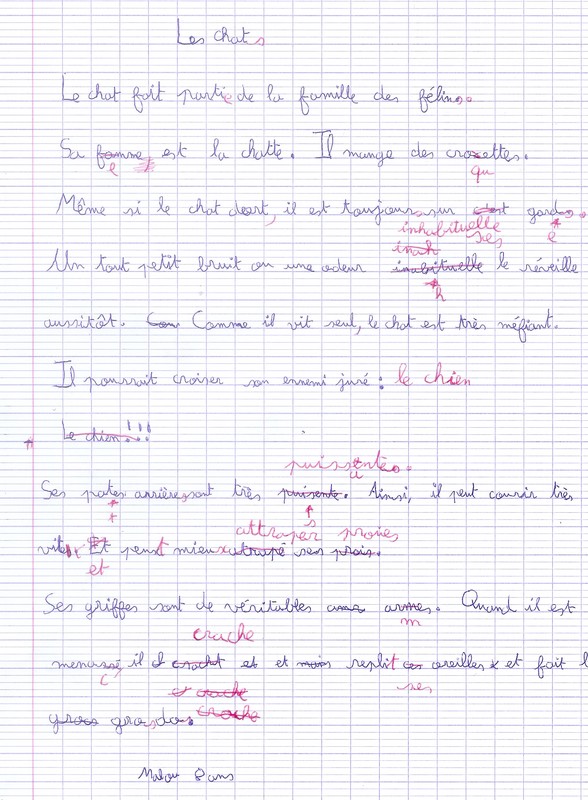 Les chats
Le chat fait partie de la famille des félins.
Sa femme est la chatte. Il mange des croquettes.
e qu
Même si le chat dort, il est toujours sur c'est gardes.
inhabituelle ses e
inah
Un tout petit bruit ou une odeur inabituelle le réveille
h
aussitôt. Comme il vit seul, le chat est très méfiant.
Il pourrait croiser son ennemi juré : le chien
Le chien!!!
puissantes.
Ses pates arrières sont très puisente. Ainsi, il peut courir très
t
attraper proies
vite Et peut mieux atrapé ses prois.
et
Ses griffes sont de véritables armes. Quand il est
m
crache
menassé, il crachet et et replit ces oreilles et fait l
c ses
et crache
gros gros dos. croche
8 ans